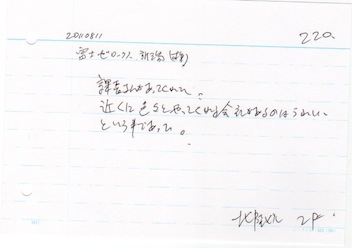 20110811 220
富士ゼロックス 新潟(株)
課長さんがあってくれた。
近くに色々とやってくれる会社があるのはうれしい
という事であった。